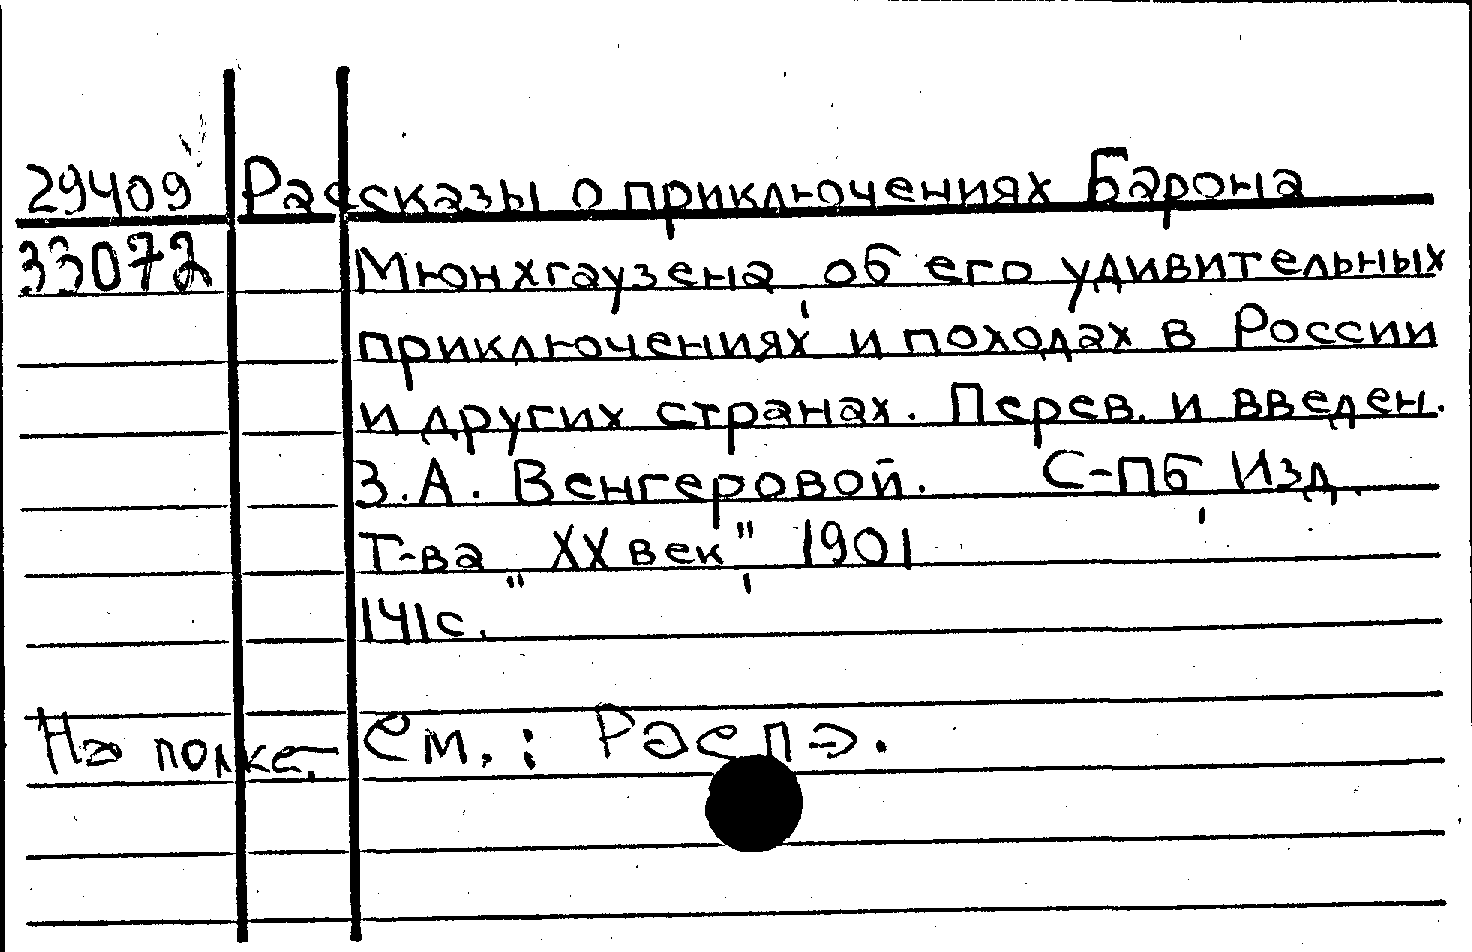 29409 Рассказы о приключениях Барона
33072 Мюнхгаузена, об его удивительных
приключениях и походах в России
и других странах. Перев. и введен.
З.А. Венгеровой. С-ПБ, Изд.
Т-ва „ХХ век", 1901
141с.
На полке. См.: Распэ.